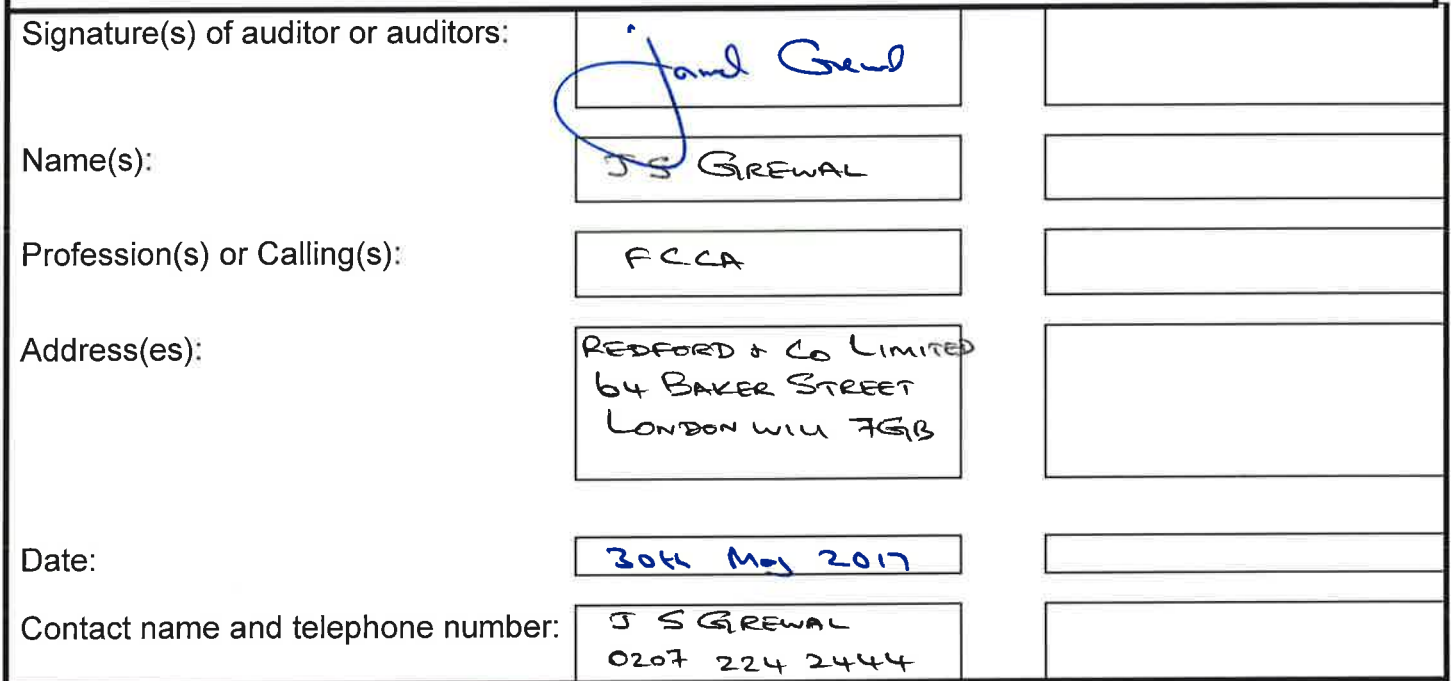 Signature(s) of auditor or auditors:
Name(s):
J S GREWAL
Profession(s) or Calling(s):
FCCA
Address(es):
REDFORD & CO LIMITED
64 BAKER STREET
LONDON W1U 7GB
Date:
30th May 2017
Contact name and telephone number:
J S GREWAL
0207 224 2444